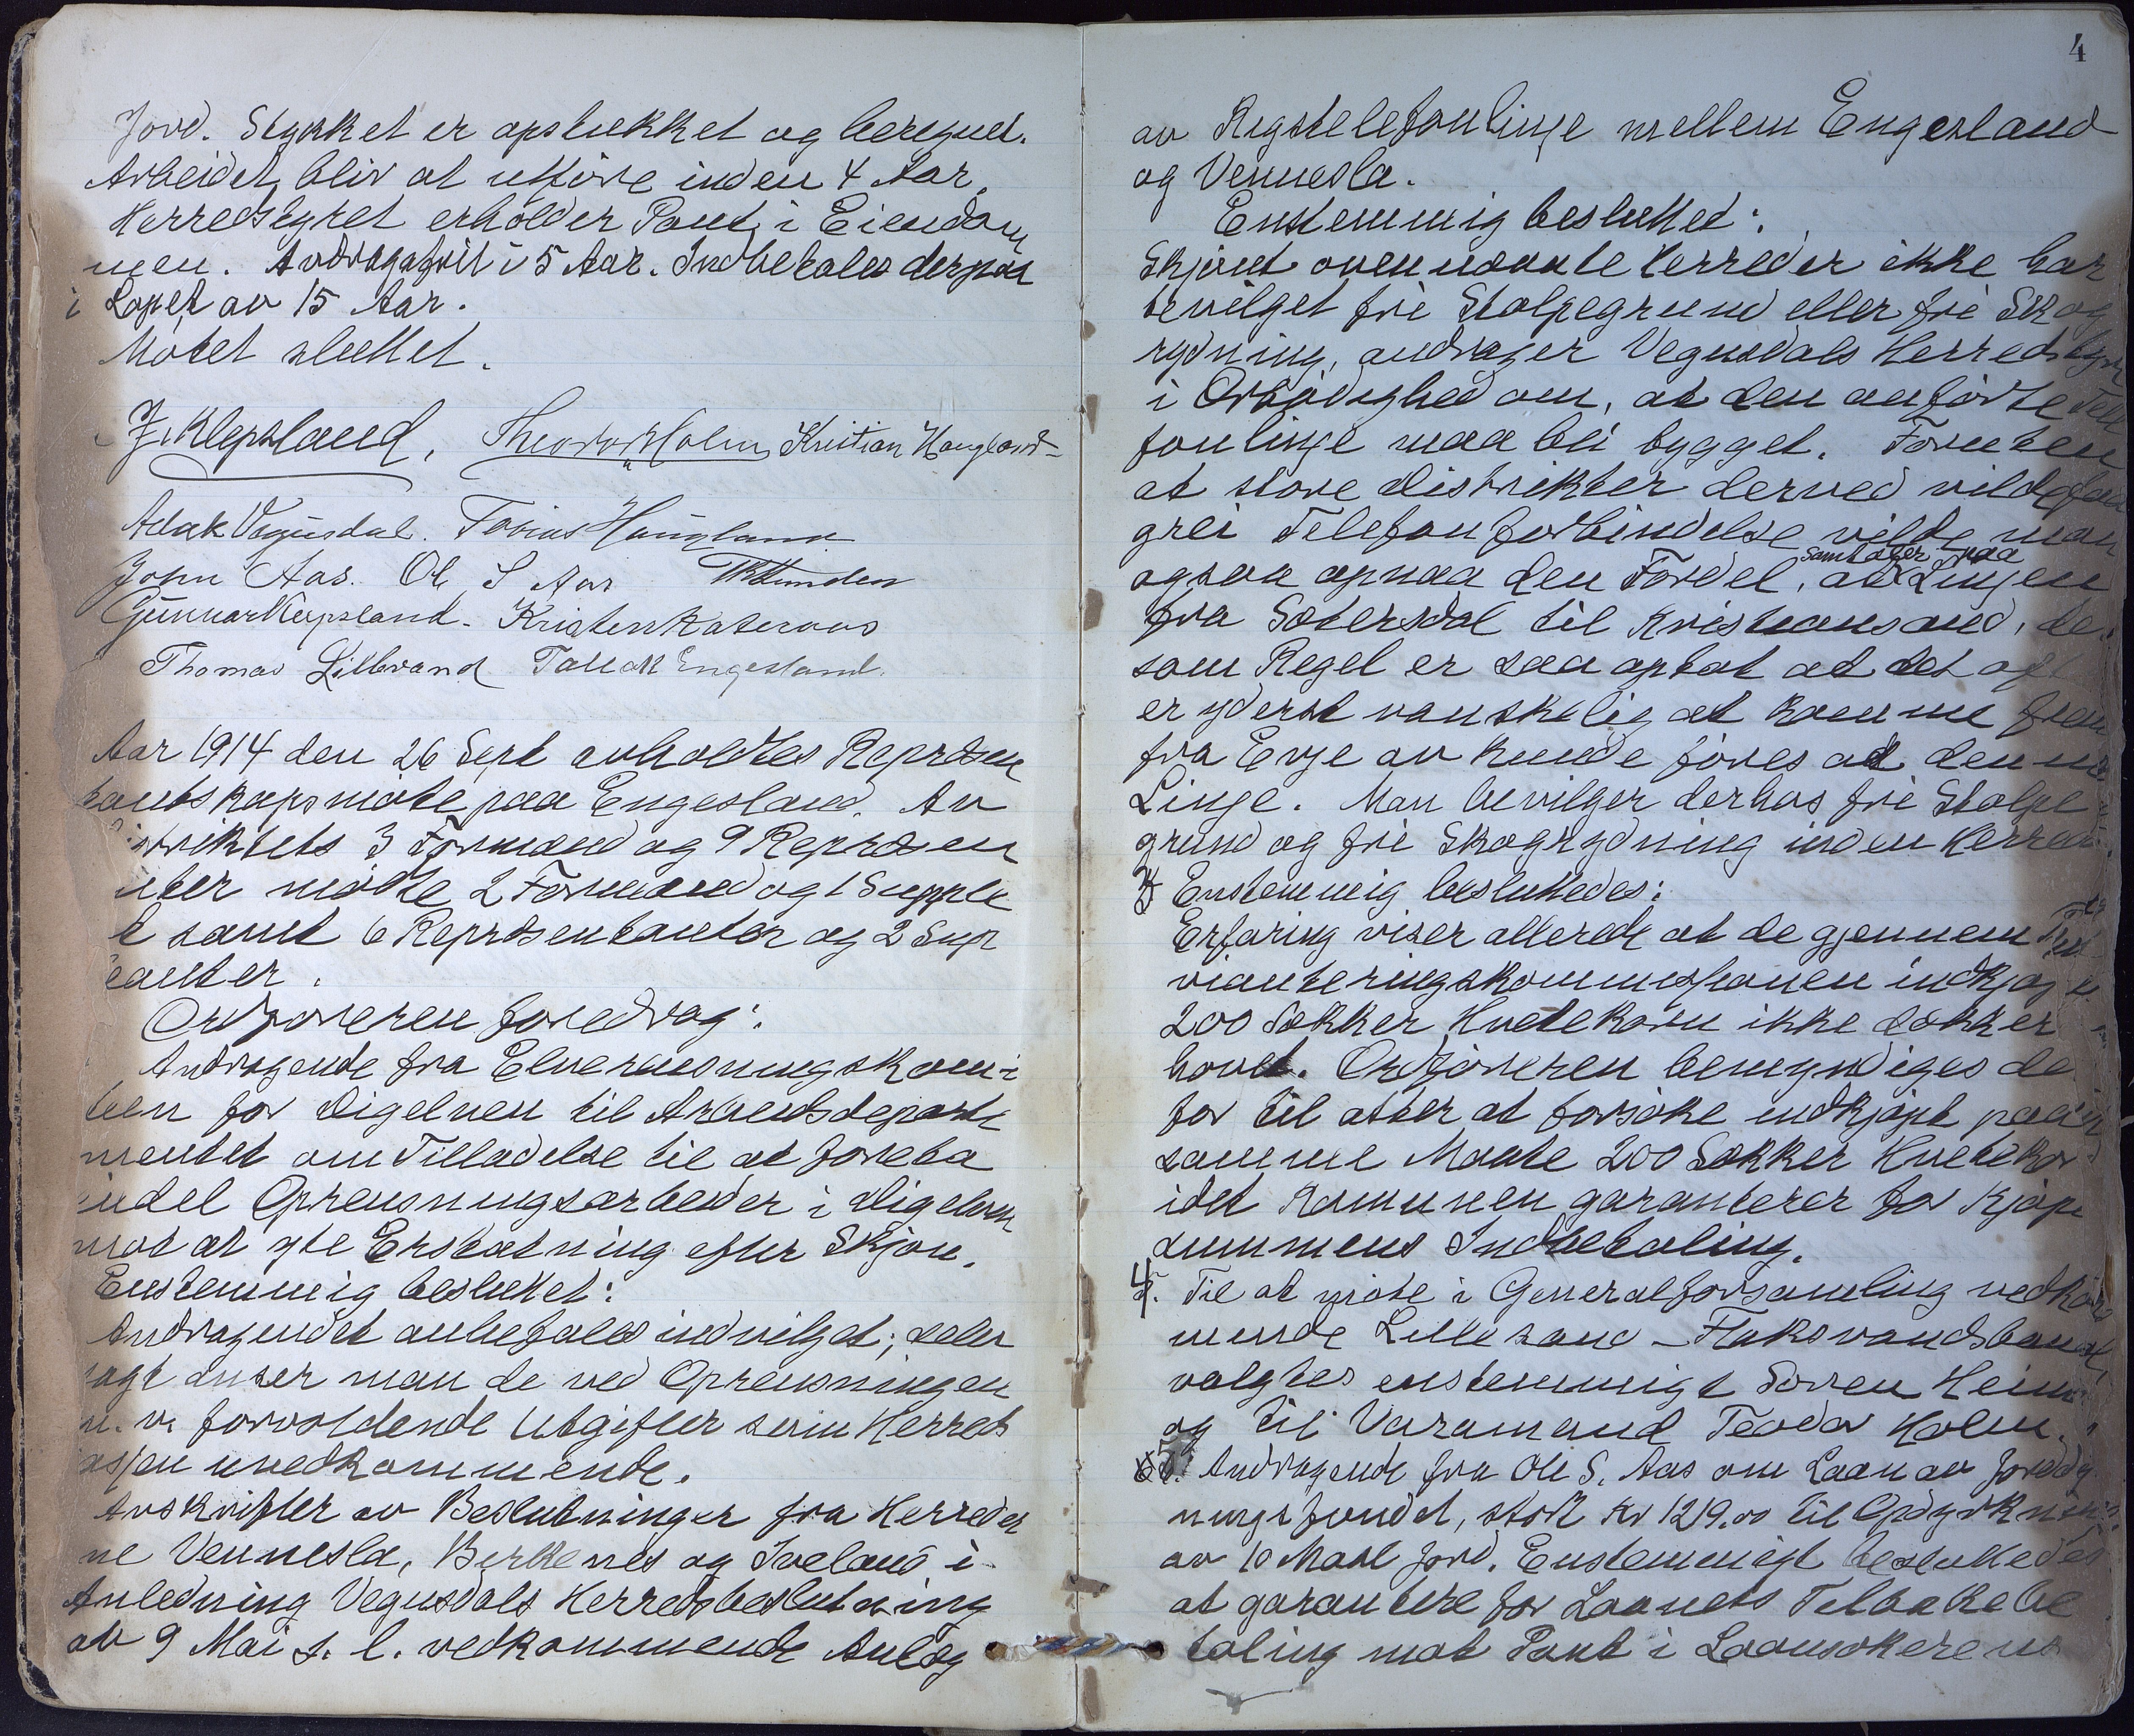 Jord. Stykket er opstukket og beregnet.
Arbeidet bliv at utføre inden 4 Aar.
Herredstyret erholder Pant i Eiendom
men. Avdragsfrit i 5 Aar. Indbetales derpaa
i Løpet av 15 Aar.
Møtet sluttet.
J. Klepsland, Theodor Holm, Kristian Haugland
Aslak Vegusdal. Tobias Haugland
John Aas. Ole S Aas
Gunnar Klepsland. Kristen Rateraas
Thomas Lillbrand Tallak Engesland.
Aar 1914 den 26 Sept avholdtes Repræsen
tantskapsmøte paa Engesland. Av
istriktets 3 Formænd og 9 Repræsen
nter mødte 2 Formænd og 1 Supple
t samt 6 Repræsentanter og 2 Sup
eanter.
Ordføreren foredrag:
Andragende fra Elverensningskomi
teen for Digelven til Arbeidsdeparte
mentet om Tilladelse til at foreta
endel Oprensningsarbeider i Digelven
mot at yte Erstatning efter Skjøn.
Enstemmig besluttet:
Andragendet anbefales indvilget; seler
sagt anser man de ved Oprensningen
m. v. forvoldende Utgifter som Herreds
kassen uvedkommende.
Avskrifter av Beslutninger fra Herreder
ne Vennesla, Birkenes og Iveland i
Anledning Vegusdals Herredsbeslutning
av 9 Mai s. l. vedkommende Anlæg
4
av Rigstelefonlinje mellem Engesland
og Vennesla.
Enstemmig besluttet:
Skjønt ovennævnte Herreder ikke har
bevilget fri Stolpegrund eller fri Skog
rydning, andrager Vegusdals Herredstyr
i Ærbødighed om, at den anførte Tele
fonlinje maa bli bygget. Foruten
at store Distrikter derved vilde faa
grei Telefonforbindelse vilde man
ogsaa opnaa den Fordel, at samtaler paa Linjen
fra Sætersdal til Kristiansand, de
som Regel er saa optat at det oft
er yderst vanskelig at komme frem
fra Evje av kunde føres ad denne
Linje. Man bevilger derhos fri Stolpe
grund og fri Skogrydning inden Herred
3 Enstemmig besluttedes:
Erfaring viser allerede at de gjennem Pro
vianteringskommissionen indkjøpte
200 Sækker Hvetekorn ikke dækker
hovet. Ordføreren bemyndiges de
for til atter at forsøke indkjøpt paa
samme Maate 200 Sækker Hvetekor
idet Komunen garanterer for Kjøpe
summens Indbetaling.
4. Til at møte i Generalforsamling vedkom
mende Lillesand - Flaksvandsbanen,
valgtes enstemmigt Søren Heim
og til Varamand Teodor Holm.
5. Andragende fra Ole S. Aas om Laan av Jorddyrk
ningsfondet, stort Kr 1219.00 til Opdyrkning
av 10 Maal Jord. Enstemmigt besluttedes
at garantere for Laanets Tilbakebe
taling mot Pant i Laansøkerens